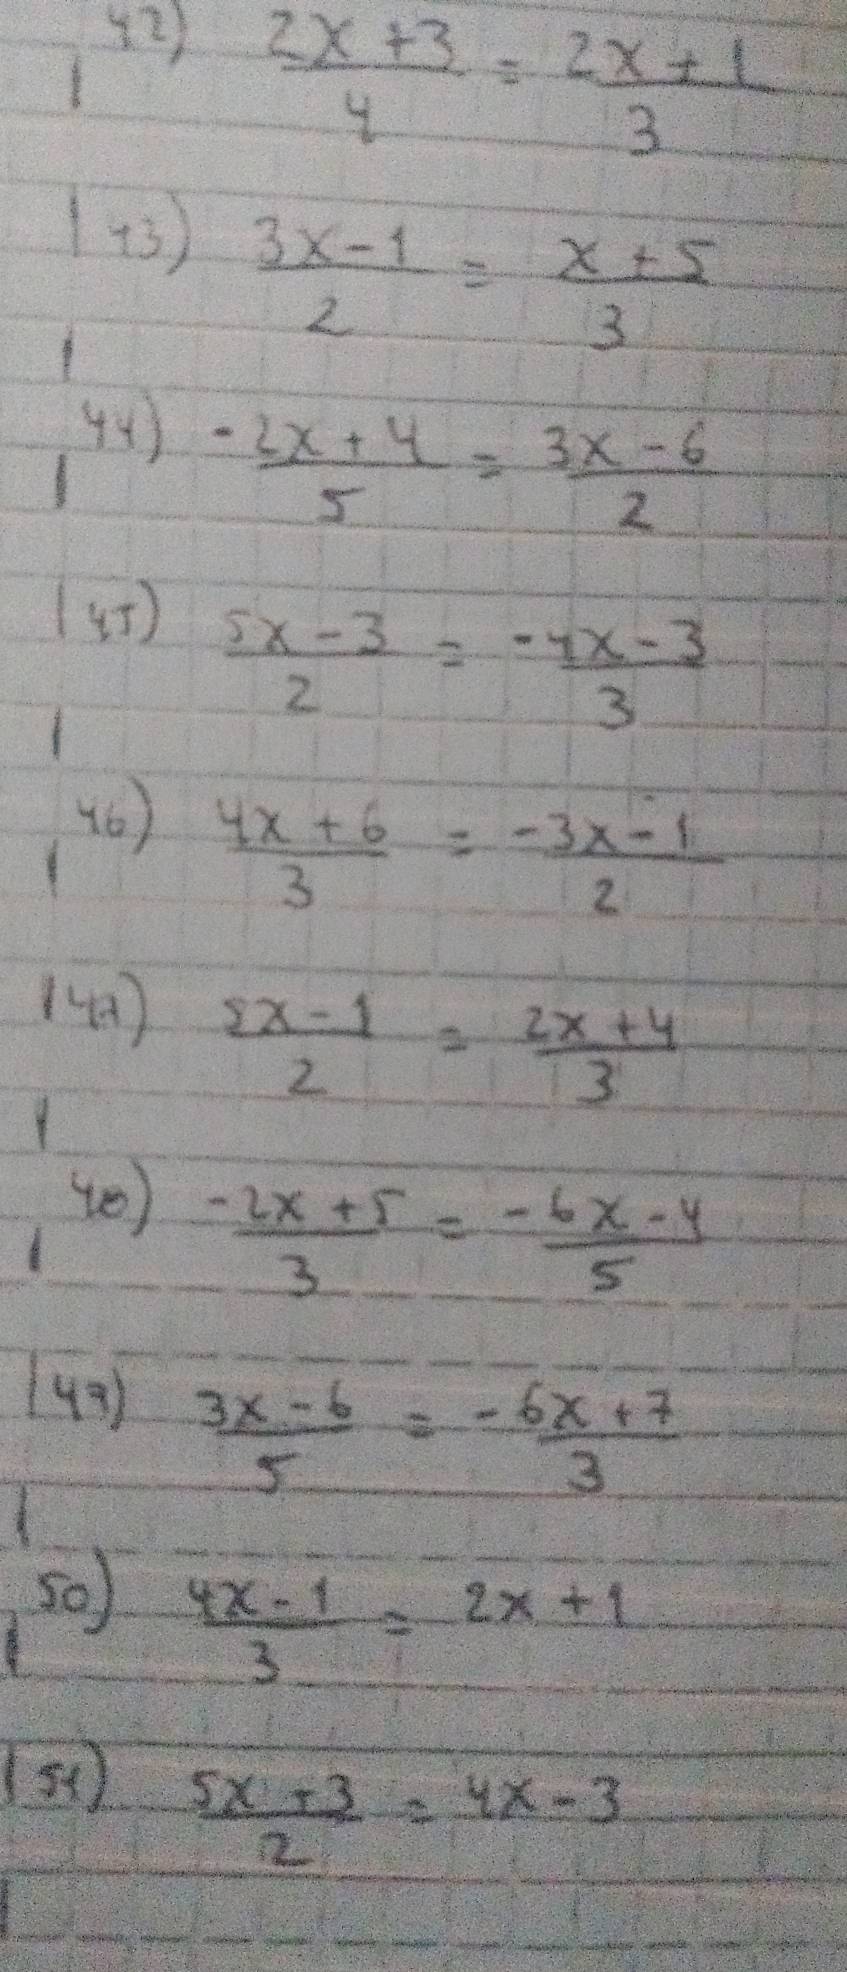 42) 2x+3/4 = 2x+1/3
43) 3x-1/2 = x+5/3
44) -2x+4/5 = 3x-6/2
45) 5x-3/2 = -4x-3/3
46) 4x+6/3 = -3x-1/2
47) 5x-1/2 = 2x+4/3
48) -2x+5/3 = -6x-4/5
49) 3x-6/5 = -6x+7/3
50) 4x-1/3 = 2x+1
51) 5x+3/2 = 4x-3